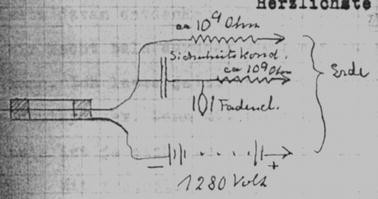 Herzlichste
ca 10⁹ Ohm
Sicherheitskond.
ca 10⁹ Ohm
Erde
Fadenel.
− +
1280 Volt